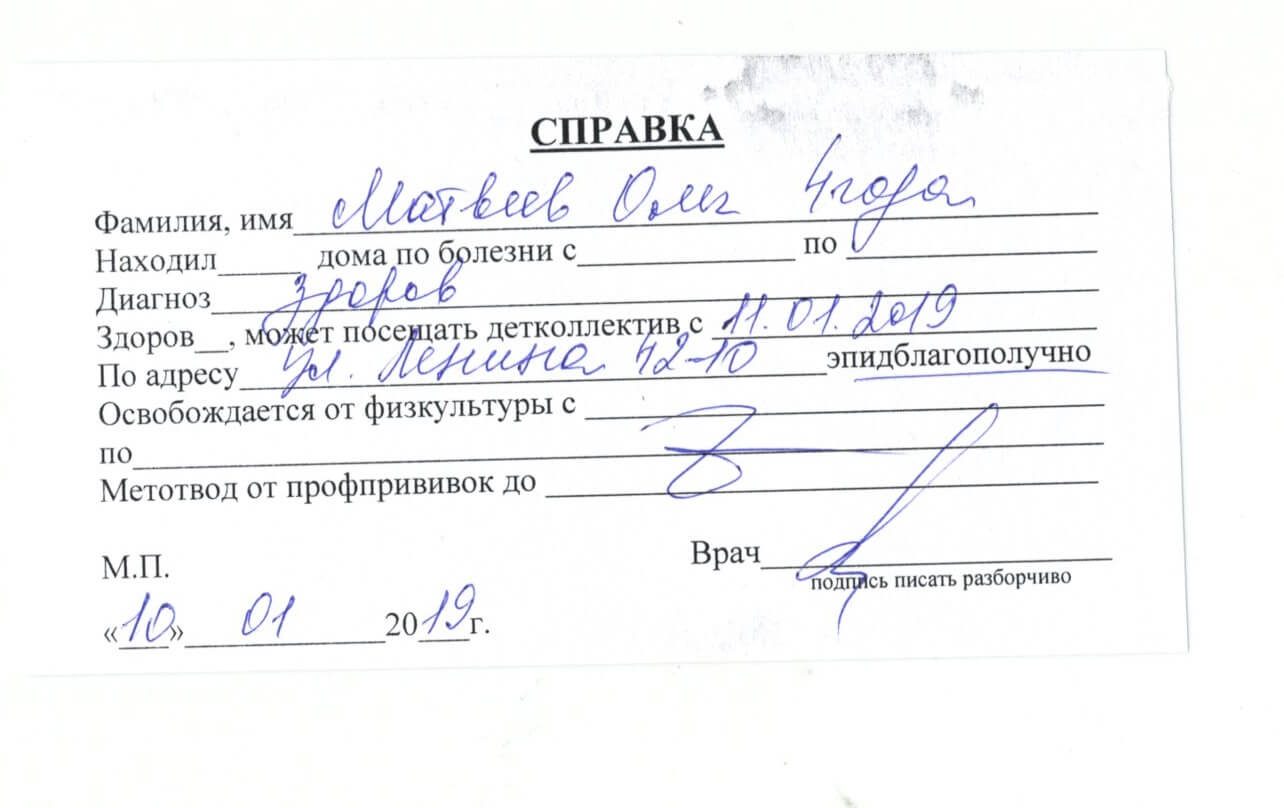 СПРАВКА
Фамилия, имя Матвеев Олег 4 года
Находил______ дома по болезни с______________ по ________________
Диагноз здоров
Здоров__, может посещать детколлектив с 11.01.2019
По адресу ул. Ленина 42-10 эпидблагополучно
Освобождается от физкультуры с ________________
по________________
Метотвод от профпрививок до ________________
М.П. Врач________________
подпись писать разборчиво
«10» 01 2019г.